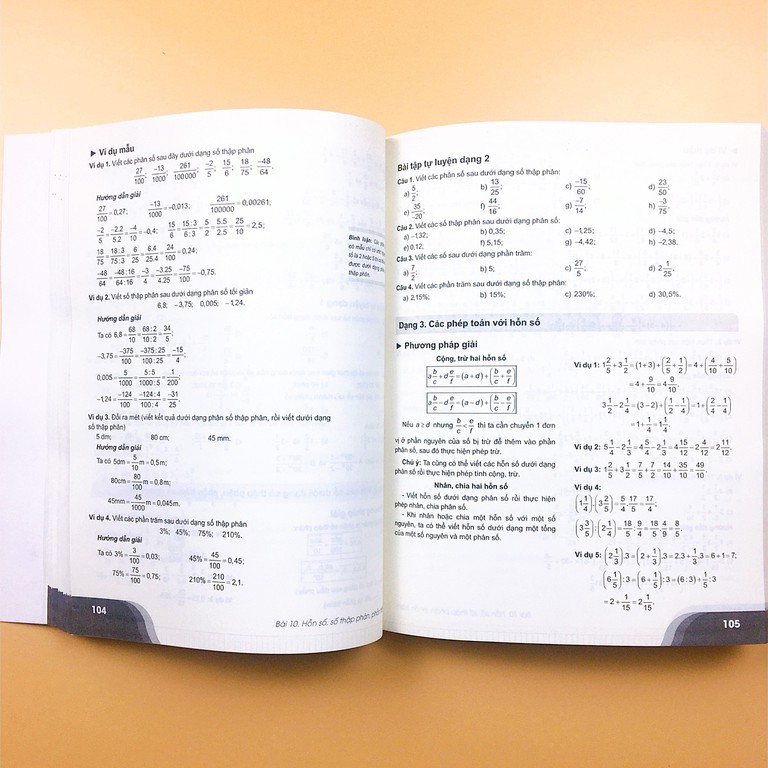 ▶ Ví dụ mẫu
Ví dụ 1. Viết các phân số sau đây dưới dạng số thập phân
27/100; -13/1000; 261/100000; -2/5; 15/6; 18/75; -48/64.
Hướng dẫn giải
27/100 = 0,27; -13/1000 = -0,013; 261/100000 = 0,00261;
-2/5 = -2.2/5.2 = -4/10 = -0,4; 15/6 = 15:3/6:3 = 5/2 = 5.5/2.5 = 25/10 = 2,5;
18/75 = 18:3/75:3 = 6/25 = 6.4/25.4 = 24/100 = 0,24;
-48/64 = -48:16/64:16 = -3/4 = -3.25/4.25 = -75/100 = -0,75.
Bình luận: Các
có mẫu chỉ có
tố là 2 hoặc 5
được dưới dạng
thập phân.
Ví dụ 2. Viết số thập phân sau dưới dạng phân số tối giản
6,8; -3,75; 0,005; -1,24.
Hướng dẫn giải
Ta có 6,8 = 68/10 = 68:2/10:2 = 34/5;
-3,75 = -375/100 = -375:25/100:25 = -15/4;
0,005 = 5/1000 = 5:5/1000:5 = 1/200;
-1,24 = -124/100 = -124:4/100:4 = -31/25
Ví dụ 3. Đổi ra mét (viết kết quả dưới dạng phân số thập phân, rồi viết dưới dạng
số thập phân)
5 dm; 80 cm; 45 mm.
Hướng dẫn giải
Ta có 5dm = 5/10 m = 0,5m;
80cm = 80/100 m = 0,8m;
45mm = 45/1000 m = 0,045m.
Ví dụ 4. Viết các phần trăm sau dưới dạng số thập phân
3%; 45%; 75%; 210%.
Hướng dẫn giải
Ta có 3% = 3/100 = 0,03; 45% = 45/100 = 0,45;
75% = 75/100 = 0,75; 210% = 210/100 = 2,1.
104
Bài 10. Hỗn số, số thập phân,
Bài tập tự luyện dạng 2
Câu 1. Viết các phân số sau dưới dạng số thập phân:
a) 5/2; b) 13/25; c) -15/60; d) 23/50;
e) 35/-20; f) 44/16; g) -7/14; h) -3/75.
Câu 2. Viết các số thập phân sau dưới dạng phân số:
a) -1,32; b) 0,35; c) -1,25; d) -4,5;
e) 0,12; f) 5,15; g) -4,42; h) -2,38.
Câu 3. Viết các số sau dưới dạng phần trăm:
a) 7/2; b) 5; c) 27/5; d) 2 1/25.
Câu 4. Viết các phần trăm sau dưới dạng số thập phân:
a) 2,15%; b) 15%; c) 230%; d) 30,5%.
Dạng 3. Các phép toán với hỗn số
▶ Phương pháp giải
Cộng, trừ hai hỗn số
a b/c + d e/f = (a + d) + (b/c + e/f)
a b/c - d e/f = (a - d) + (b/c - e/f)
Nếu a ≥ d nhưng b/c < e/f thì ta cần chuyển 1 đơn
vị ở phần nguyên của số bị trừ để thêm vào phần
phân số, sau đó thực hiện phép trừ.
Chú ý: Ta cũng có thể viết các hỗn số dưới dạng
phân số rồi thực hiện phép tính cộng, trừ.
Nhân, chia hai hỗn số
- Viết hỗn số dưới dạng phân số rồi thực hiện
phép nhân, chia phân số.
- Khi nhân hoặc chia một hỗn số với một số
nguyên, ta có thể viết hỗn số dưới dạng một tổng
của một số nguyên và một phân số.
Ví dụ 1: 1 2/5 + 3 1/2 = (1 + 3) + (2/5 + 1/2) = 4 + (4/10 + 5/10)
= 4 + 9/10 = 4 9/10.
3 1/2 - 2 1/4 = (3 - 2) + (1/2 - 1/4) = 1 + (2/4 - 1/4)
= 1 + 1/4 = 1 1/4.
Ví dụ 2: 5 1/4 - 2 1/3 = 4 5/4 - 2 1/3 = 4 15/12 - 2 4/12 = 2 11/12
Ví dụ 3: 1 2/5 + 3 1/2 = 7/5 + 7/2 = 14/10 + 35/10 = 49/10.
Ví dụ 4:
(1 1/4).(3 2/5) = 5/4 . 17/5 = 17/4.
(3 3/5):(2 1/4) = 18/5 : 9/4 = 18/5 . 4/9 = 8/5.
Ví dụ 5: (2 1/3).3 = (2 + 1/3).3 = 2.3 + 1/3.3 = 6 + 1 = 7;
(6 1/5):3 = (6 + 1/5):3 = (6:3) + 1/5:3
= 2 + 1/15 = 2 1/15.
105